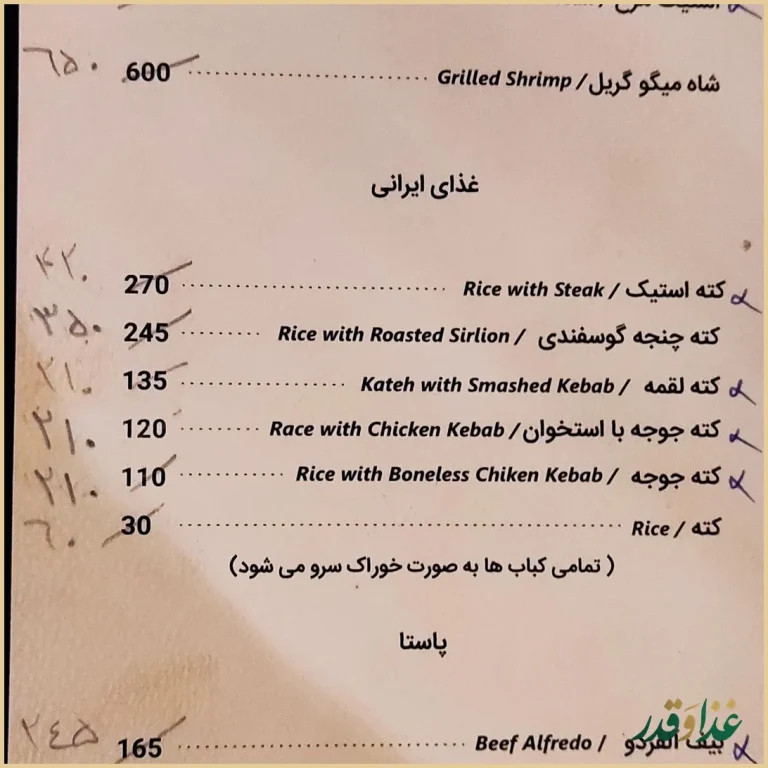 شاه میگو گریل / Grilled Shrimp ........ 600 ۶۵۰
غذای ایرانی
کته استیک / Rice with Steak ........ 270 ۴۲۰
کته چنجه گوسفندی / Rice with Roasted Sirlion ........ 245 ۳۵۰
کته لقمه / Kateh with Smashed Kebab ........ 135 ۲۱۰
کته جوجه با استخوان / Race with Chicken Kebab ........ 120 ۲۱۰
کته جوجه / Rice with Boneless Chiken Kebab ........ 110 ۲۱۰
کته / Rice ........ 30 ۶۰
( تمامی کباب ها به صورت خوراک سرو می شود)
پاستا
بیف آلفردو / Beef Alfredo ........ 165 ۲۴۵
غذا و قدر